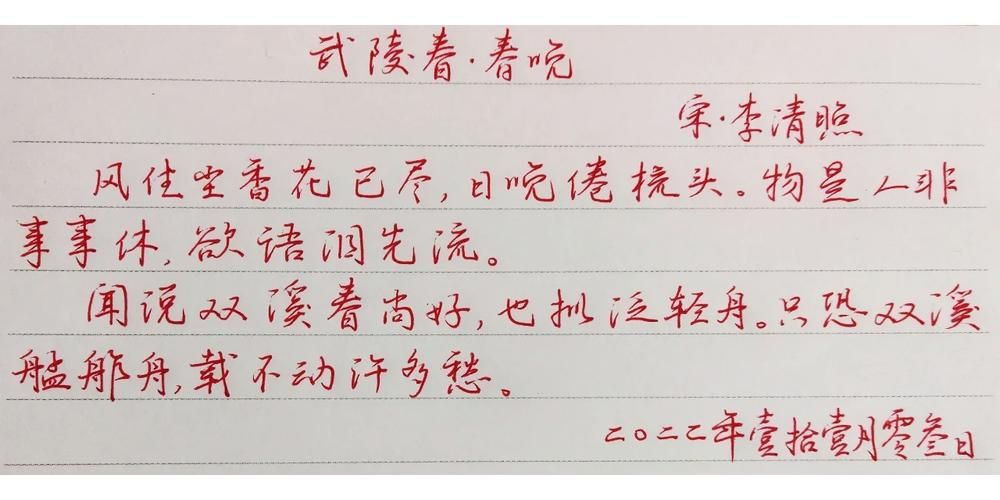 武陵春·春晚
宋·李清照
风住尘香花已尽,日晚倦梳头。物是人非
事事休,欲语泪先流。
闻说双溪春尚好,也拟泛轻舟。只恐双溪
舴艋舟,载不动许多愁。
二〇二二年壹拾壹月零叁日